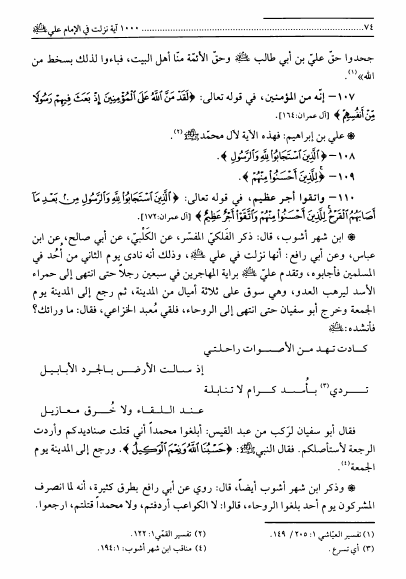 ٧٤ ........ ١٠٠٠ آية نزلت في الإمام علي
جحدوا حقّ عليّ بن أبي طالب وحقّ الأئمّة منّا أهل البيت، فباءوا لذلك بسخط من
الله»(١).
١٠٧– إنّه من المؤمنين، في قوله تعالى: ﴿لَقَدْ مَنَّ اللَّهُ عَلَى الْمُؤْمِنِينَ إِذْ بَعَثَ فِيهِمْ رَسُولًا
مِّنْ أَنفُسِهِمْ﴾ [آل عمران:١٦٤].
علي بن إبراهيم: فهذه الآية لآل محمد(٢).
١٠٨– ﴿الَّذِينَ اسْتَجَابُوا لِلَّهِ وَالرَّسُولِ﴾.
١٠٩– ﴿لِلَّذِينَ أَحْسَنُوا مِنْهُمْ﴾.
١١٠– واتقوا أجر عظيم، في قوله تعالى: ﴿الَّذِينَ اسْتَجَابُوا لِلَّهِ وَالرَّسُولِ مِن بَعْدِ مَا
أَصَابَهُمُ الْقَرْحُ لِلَّذِينَ أَحْسَنُوا مِنْهُمْ وَاتَّقَوْا أَجْرٌ عَظِيمٌ﴾ [آل عمران:١٧٢].
ابن شهر أشوب، قال: ذكر الفَلكيّ المفسّر، عن الكَلْبيّ، عن أبي صالح، عن ابن
عباس، وعن أبي رافع: أنها نزلت في علي، وذلك أنه نادى يوم الثاني من أُحد في
المسلمين فأجابوه، وتقدم عليّ براية المهاجرين في سبعين رجلًا حتى انتهى إلى حمراء
الأسد ليرهب العدو، وهي سوق على ثلاثة أميال من المدينة، ثم رجع إلى المدينة يوم
الجمعة وخرج أبو سفيان حتى انتهى إلى الروحاء، فلقي مُعبد الخزاعي، فقال: ما ورائك؟
فأنشده:
كادت تهد من الأصوات راحلتي
إذ سالت الأرض بالجرد الأبابيل
تردي(٣) بأُسد كرام لا تنابلة
عند اللقاء ولا خُرق معازيل
فقال أبو سفيان لرَكب من عبد القيس: أبلغوا محمداً أني قتلت صناديدكم وأردت
الرجعة لأستأصلكم. فقال النبي: ﴿حَسْبُنَا اللَّهُ وَنِعْمَ الْوَكِيلُ﴾. ورجع إلى المدينة يوم
الجمعة(٤).
وذكر ابن شهر أشوب أيضاً، قال: روي عن أبي رافع بطرق كثيرة، أنه لما انصرف
المشركون يوم أحد بلغوا الروحاء، قالوا: لا الكواعب أردفتم، ولا محمداً قتلتم، ارجعوا.
(١) تفسير العيّاشي ١: ٢٠٥/ ١٤٩.
(٢) تفسير القمّي١: ١٢٢.
(٣) أي تسرع.
(٤) مناقب ابن شهر أشوب: ١٩٤:١.